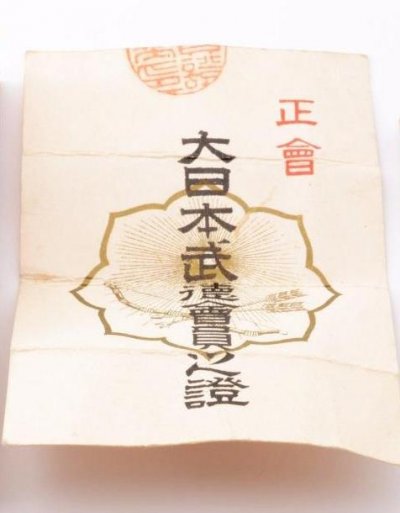 正會
大日本武德會會員之證